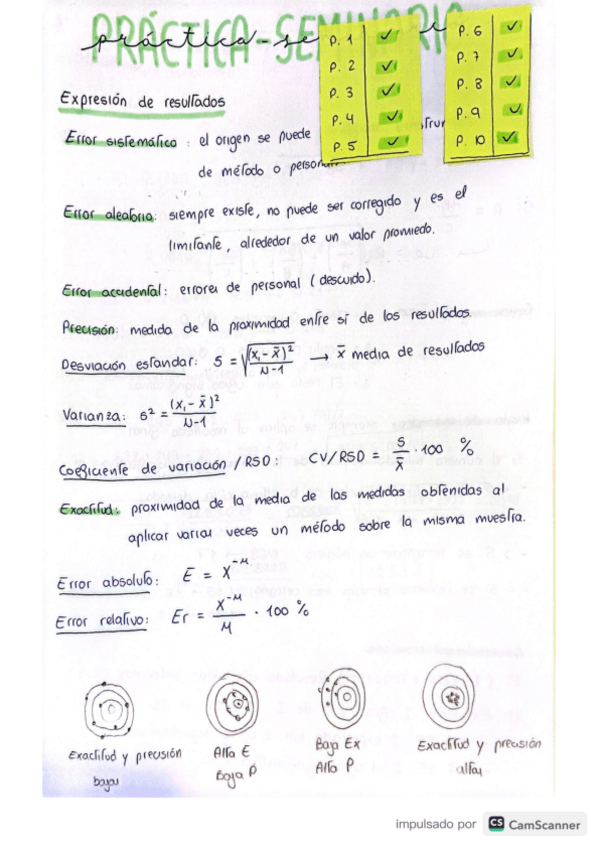 PRÁCTICA-SEMINARIO
práctica-se
P. 1 ✓
P. 2 ✓
P. 3 ✓
P. 4 ✓
P. 5 ✓
P. 6 ✓
P. 7 ✓
P. 8 ✓
P. 9 ✓
P. 10 ✓
Expresión de resultados
Error sistemático : el origen se puede
de método o person
Error aleatorio: siempre existe, no puede ser corregido y es el
limitante, alrededor de un valor promiedo.
Error accidental: errores de personal (descuido).
Precisión: medida de la proximidad entre sí de los resultados.
Desviación estandar: S = √(x₁ - x̄)² / N-1 → x̄ media de resultados
Varianza: S² = (x₁ - x̄)² / N-1
Coeficiente de variación / RSD: CV/RSD = S / x̄ · 100 %
Exactitud: proximidad de la media de las medidas obtenidas al
aplicar varias veces un método sobre la misma muestra.
Error absoluto: E = X^-μ
Error relativo: Er = X^-μ / μ · 100 %
Exactitud y precisión
bajas
Alta E
Baja P
Baja Ex
Alto P
Exactitud y precisión
altas
impulsado por CS CamScanner